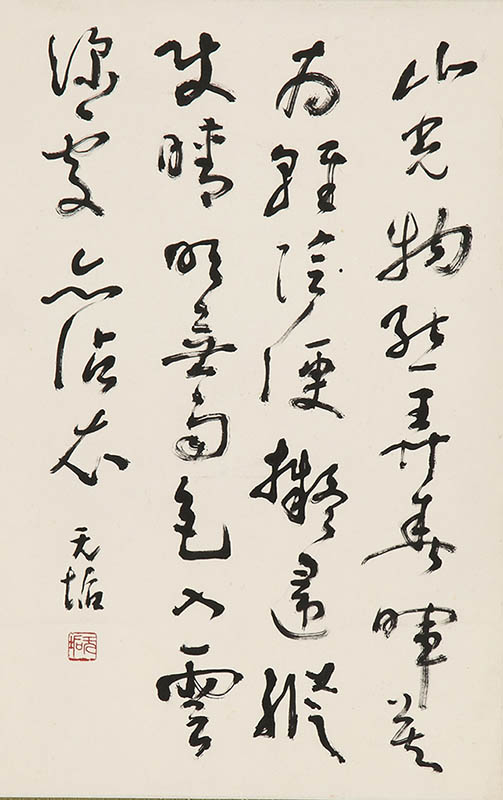 山光物態弄春暉莫
為輕陰便擬歸縱
使晴明無雨色入雲
深處亦沾衣
无垢